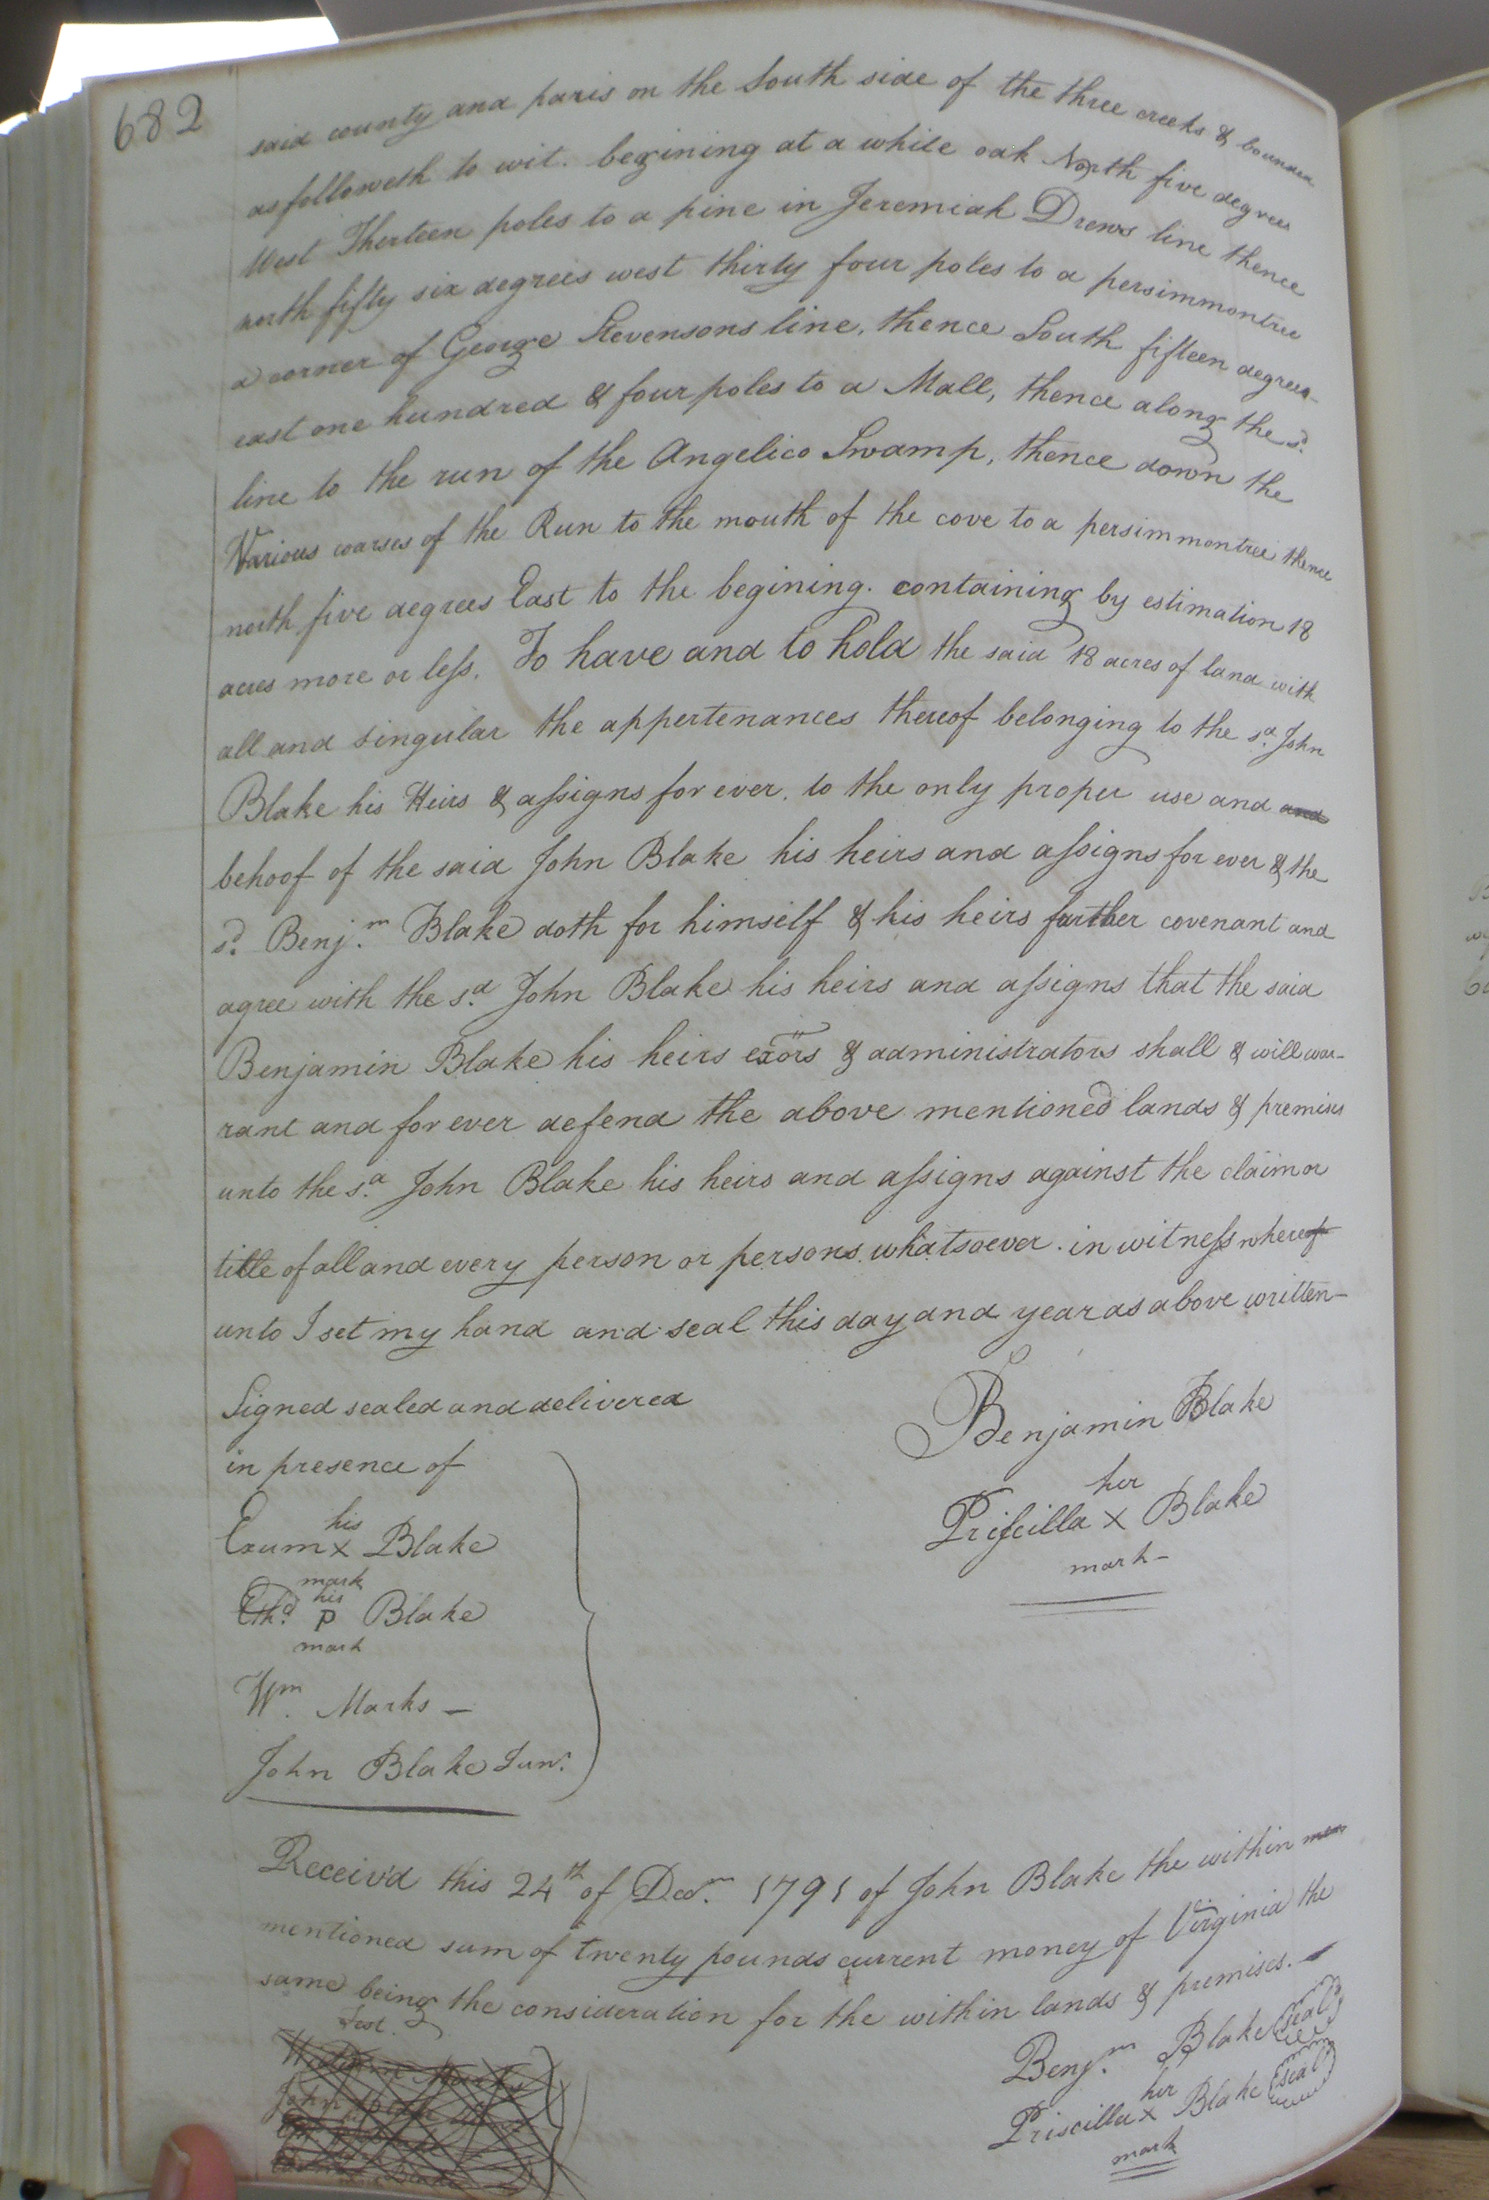 682
said county and paris on the South side of the three creeks & bounded
as followeth to wit. begining at a white oak North five degrees
West Therteen poles to a pine in Jeremiah Drews line thence
north fifty six degrees west thirty four poles to a persimmontree
a corner of George Stevensons line, thence South fifteen degrees
east one hundred & four poles to a Mall, thence along the sd.
line to the run of the Angelico Swamp, thence down the
Various courses of the Run to the mouth of the cove to a persimmontree thence
north five degrees East to the begining. containing by estimation 18
acres more or less. To have and to hold the said 18 acres of land with
all and singular the appertenances thereof belonging to the sd. John
Blake his Heirs & assigns for ever. to the only proper use and and
behoof of the said John Blake his heirs and assigns for ever & the
sd. Benjm. Blake doth for himself & his heirs further covenant and
agree with the sd. John Blake his heirs and assigns that the said
Benjamin Blake his heirs exors & administrators shall & will war-
rant and for ever defend the above mentioned lands & premises
unto the sd. John Blake his heirs and assigns against the claim or
title of all and every person or persons whatsoever. in witness whereof
unto I set my hand and seal this day and year as above written-
Signed sealed and delivered
in presence of
Benjamin Blake
her
Priscilla x Blake
mark-
his
Exum x Blake
mark
his
Ethd. P Blake
mark
Wm. Marks -
John Blake Junr.
Receiv'd this 24th of Decm. 1791 of John Blake the within men
mentioned sum of twenty pounds current money of Virginia the
same being the consideration for the within lands & premises. -
Test.
Benjm. Blake (seal)
her
Priscilla x Blake (seal)
mark